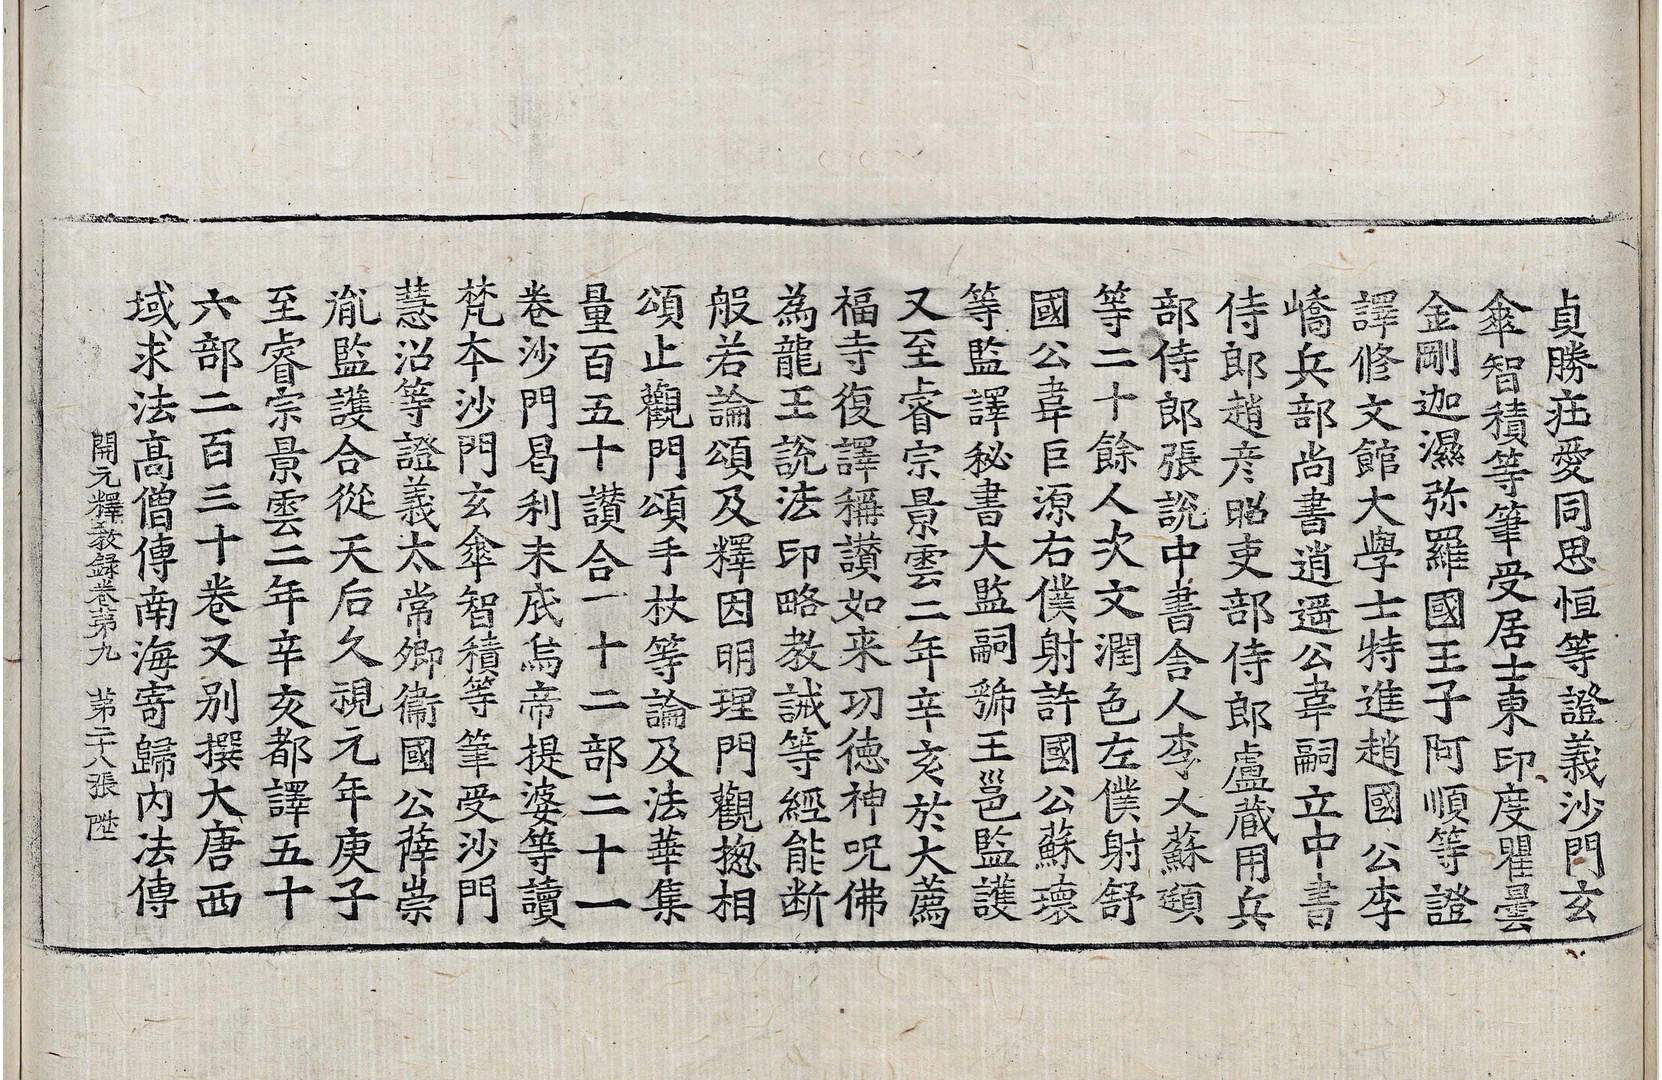 貞勝莊愛同思恒等證義沙門玄
傘智積等筆受居士東印度瞿曇
金剛迦濕弥羅國王子阿順等證
譯修文館大學士特進趙國公李
嶠兵部尚書逍遥公韋嗣立中書
侍郎趙彦昭吏部侍郎盧蔵用兵
部侍郎張說中書舍人李乂蘇頲
等二十餘人次文潤色左僕射舒
國公韋巨源右僕射許國公蘇瓌
等監譯秘書大監嗣虢王邕監護
又至睿宗景雲二年辛亥於大薦
福寺復譯稱讃如来功德神呪佛
為龍王說法印略教誡等經能断
般若論頌及釋因明理門觀摠相
頌止觀門頌手杖等論及法華集
量百五十讃合一十二部二十一
卷沙門曷利末底烏帝提婆等讀
梵本沙門玄傘智積等筆受沙門
慧沼等證義太常卿衞國公薛崇
胤監護合從天后久視元年庚子
至睿宗景雲二年辛亥都譯五十
六部二百三十卷又別撰大唐西
域求法高僧傳南海寄歸内法傳
開元釋教録卷第九 第二十八張 陞